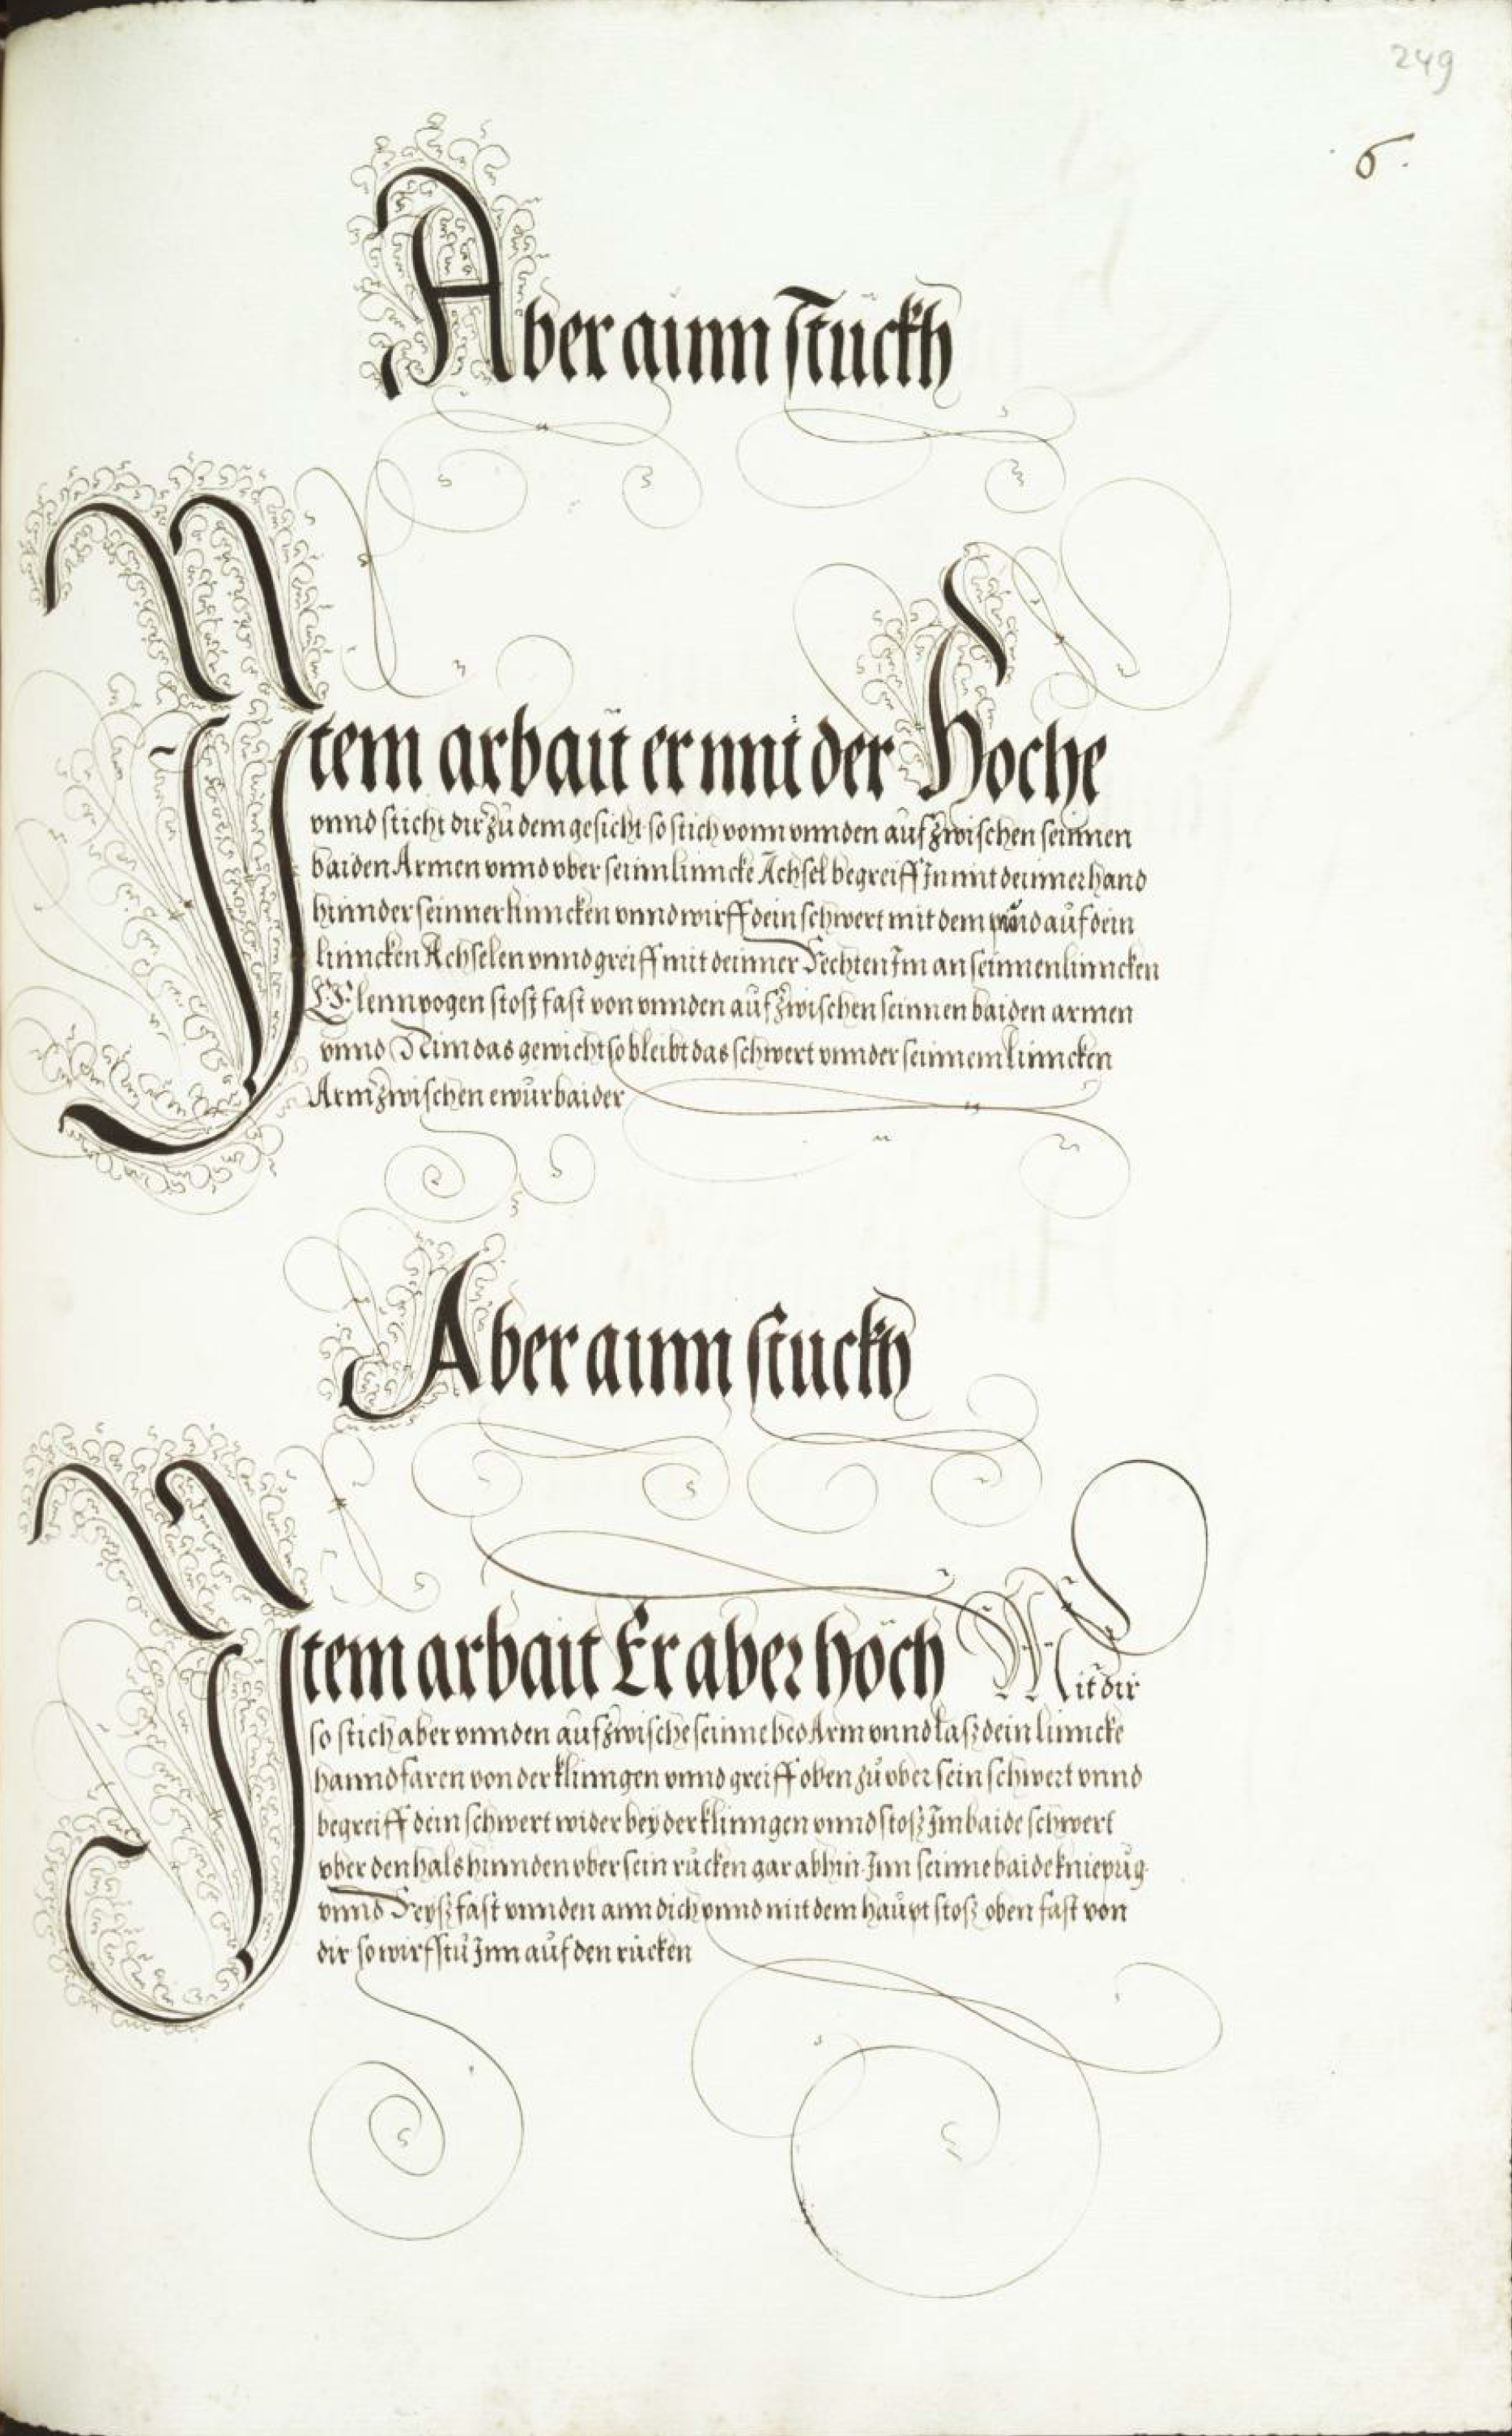 249
6.
Aber ainn stuckh
Item arbait er mit der Hoche
vnnd sticht dir zů dem gesicht so stich vonn vnnden aůf zwischen seinnen
baiden Armen vnnd vber seinn linncke Achsel begreiff In mit deinner hand
hinnder seinner linncken vnnd wirff dein schwert mit dem aůf dein
linncken Achselen vnnd greiff mit deinner Rechten Im an seinnen linncken
Elennpogen stosz fast von vnnden aůf zwischen seinnen baiden armen
vnnd Nim das gewicht so bleibt das schwert vnnder seinnem linncken
Arm zwischen ewůr baider
Aber ainn stuckh
Item arbait Er aber hoch Mit dir
so stich aber vnnden aůf zwische seinne bed Arm vnnd lasz dein linncke
hannd faren von der klinngen vnnd greiff oben zů vber sein schwert vnnd
begreiff dein schwert wider bey der klinngen vnnd stosz Im baide schwert
vber den hals hinnden vber sein růcken gar abhin Inn seinne baide kniepůg
vnnd Reysz fast vnnden ann dich vnnd mit dem haůpt stosz oben fast von
dir so wirfstů Inn aůf den růcken